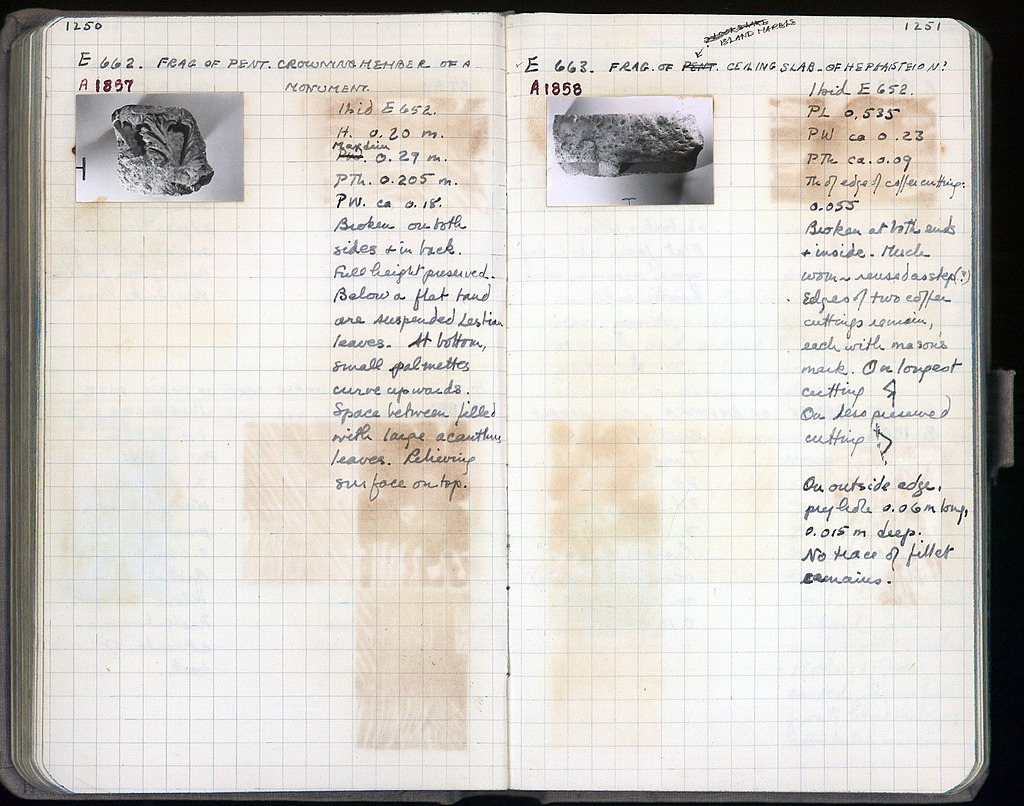 1250
E 662. FRAG OF PENT. CROWNING MEMBER OF A
MONUMENT.
A 1857
Ibid E 652.
H. 0.20 m.
Max dim
0.29 m.
PTh. 0.205 m.
PW. ca 0.18.
Broken on both
sides + in back.
Full height preserved.
Below a flat band
are suspended Lesbian
leaves. At bottom,
small palmettes
curve upwards.
Space between filled
with large acanthus
leaves. Relieving
surface on top.
1251
ISLAND MARBLE
E 663. FRAG. OF PENT. CEILING SLAB - OF HEPHAISTEION?
A 1858
Ibid E 652.
PL 0.535
PW ca 0.23
PTh ca. 0.09
Th of edge of coffer cutting:
0.055
Broken at both ends
+ inside. Much
worn - reused as step (?)
Edges of two coffer
cuttings remain,
each with mason's
mark. On longest
cutting
On less preserved
cutting
On outside edge,
pry hole 0.06 m long,
0.015 m deep.
No trace of fillet
remains.